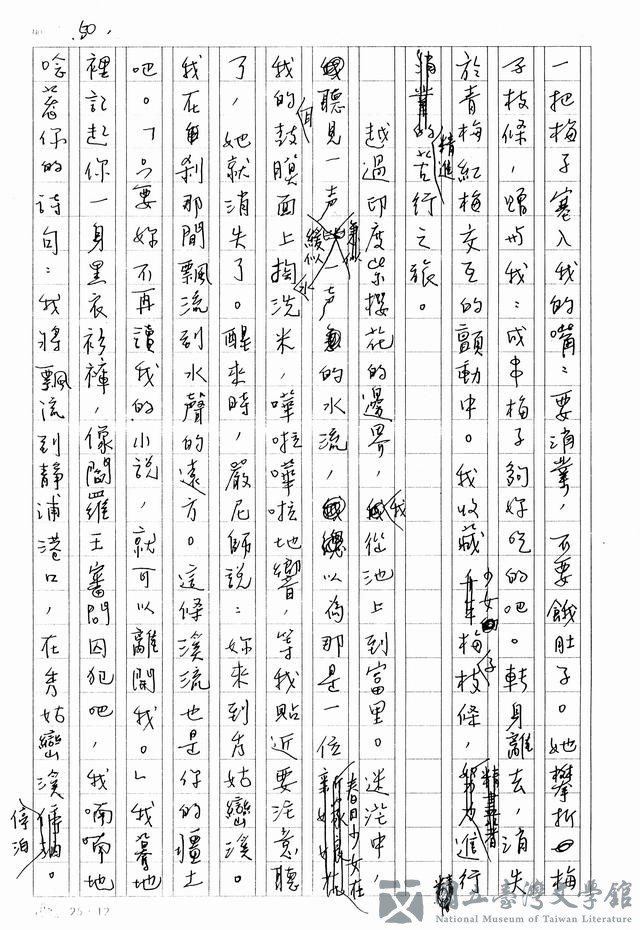 50.
一把梅子塞入我的嘴:要消業,不要餓肚子。她攀折梅
子枝條,贈與我:成串梅子夠好吃的吧。轉身離去,消失
於青梅紅梅交互的顫動中。我收藏少女梅子枝條,進行
精進的苦行之旅。
越過印度紫檀花的邊界,我從池上到富里。迷茫中,
聽見一聲急似一聲緩似水的水流,總以為那是一位春日少女在
我的鼓膜面上掏洗米,嘩啦嘩啦地響,等我貼近要注意聽
了,她就消失了。醒來時,嚴尼師說:妳來到秀姑巒溪。
我在自剎那間飄流到水聲的遠方。這條溪流也是你的疆土
吧。「只要妳不再讀我的小說,就可以離開我。」我驀地
裡記起你一身黑衣衫褲,像閻羅王審問囚犯吧,我喃喃地
唸著你的詩句:我將飄流到靜浦港口,在秀姑巒溪停泊。
25×12
國立臺灣文學館
National Museum of Taiwan Literature